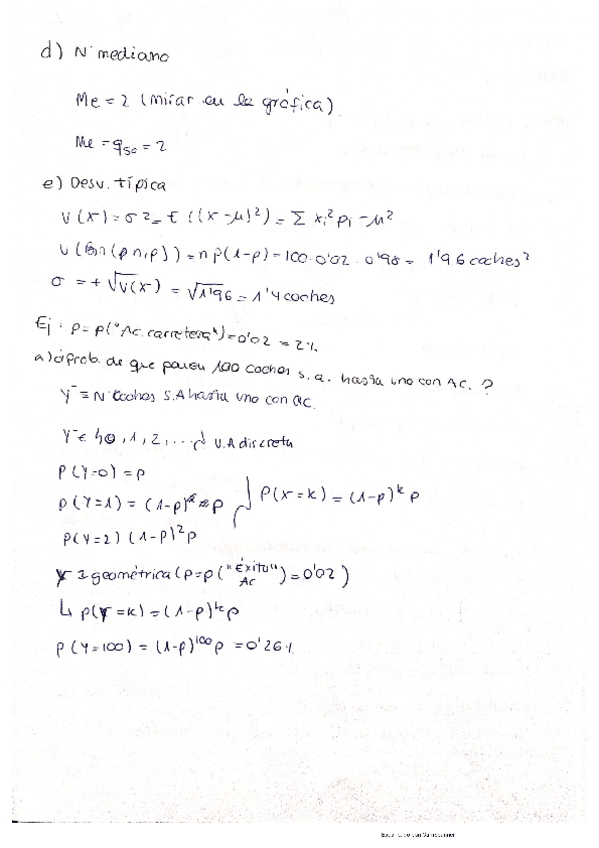 d) Nº mediano
Me = 2 (mirar en la gráfica)
Me = q50 = 2
e) Desv. típica
V(x) = σ² = E((x-μ)²) = Σ xi² pi - μ²
V(Bin(n,p)) = n p(1-p) = 100·0'02·0'98 = 1'96 coches²
σ = +√V(x) = √1'96 = 1'4 coches
Ej: p = p("Ac. carretera") = 0'02 = 2%
a) ¿prob. de que pasen 100 coches s.a. hasta uno con Ac.?
Y = Nº coches S.A hasta uno con ac.
Y ∈ {0, 1, 2, ...} V.A discreta
P(Y=0) = p
P(Y=1) = (1-p) p } P(x=k) = (1-p)^k p
P(Y=2) (1-p)²p
Y geométrica (p = p("Éxito" Ac) = 0'02)
↳ p(Y=k) = (1-p)^k p
P(Y=100) = (1-p)^100 p = 0'26%